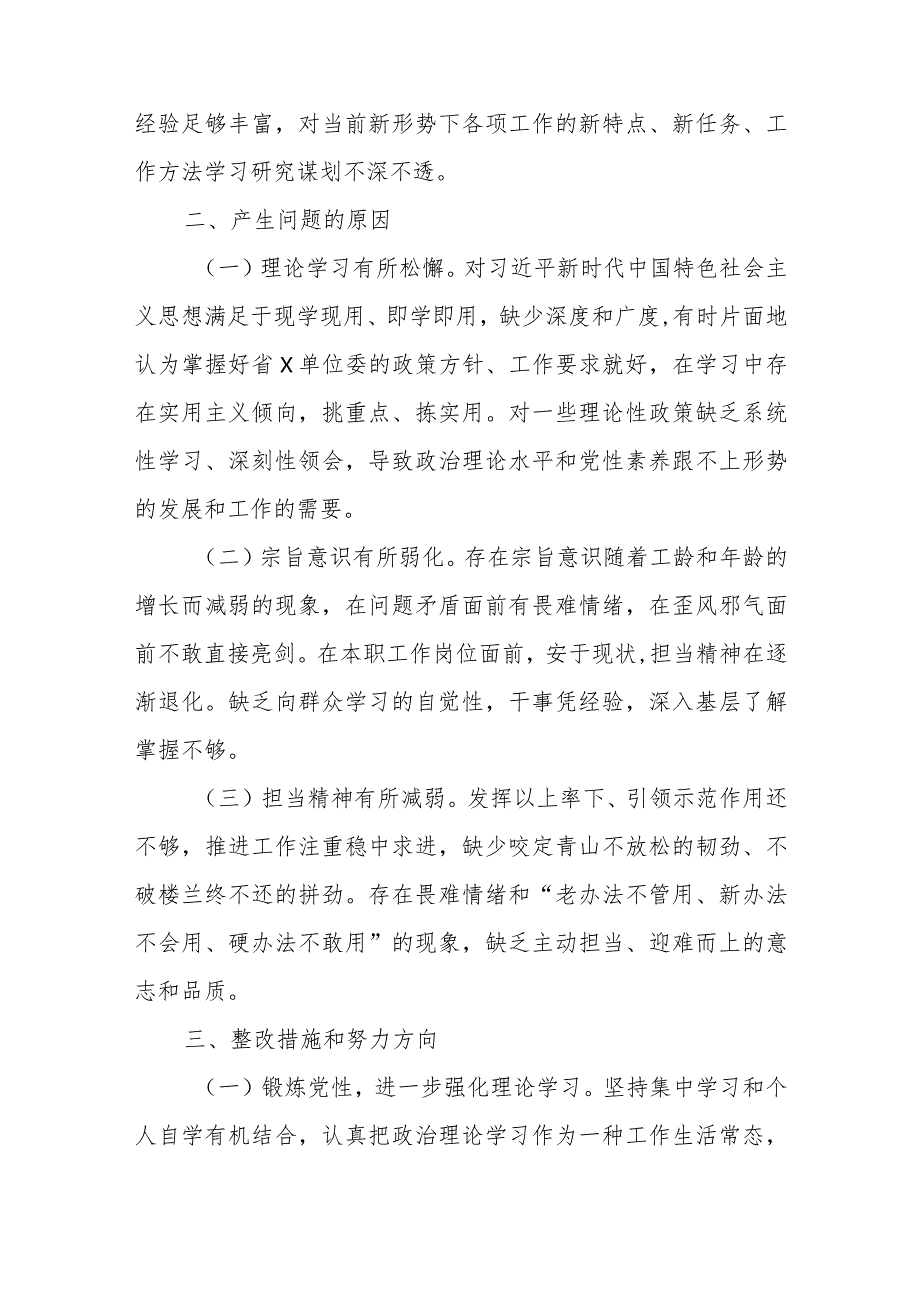 经验足够丰富，对当前新形势下各项工作的新特点、新任务、工
作方法学习研究谋划不深不透。
二、产生问题的原因
（一）理论学习有所松懈。对习近平新时代中国特色社会主
义思想满足于现学现用、即学即用，缺少深度和广度,有时片面地
认为掌握好省X单位委的政策方针、工作要求就好，在学习中存
在实用主义倾向，挑重点、拣实用。对一些理论性政策缺乏系统
性学习、深刻性领会，导致政治理论水平和党性素养跟不上形势
的发展和工作的需要。
（二）宗旨意识有所弱化。存在宗旨意识随着工龄和年龄的
增长而减弱的现象，在问题矛盾面前有畏难情绪，在歪风邪气面
前不敢直接亮剑。在本职工作岗位面前，安于现状,担当精神在逐
渐退化。缺乏向群众学习的自觉性，干事凭经验，深入基层了解
掌握不够。
（三）担当精神有所减弱。发挥以上率下、引领示范作用还
不够，推进工作注重稳中求进，缺少咬定青山不放松的韧劲、不
破楼兰终不还的拼劲。存在畏难情绪和“老办法不管用、新办法
不会用、硬办法不敢用”的现象，缺乏主动担当、迎难而上的意
志和品质。
三、整改措施和努力方向
（一）锻炼党性，进一步强化理论学习。坚持集中学习和个
人自学有机结合，认真把政治理论学习作为一种工作生活常态，